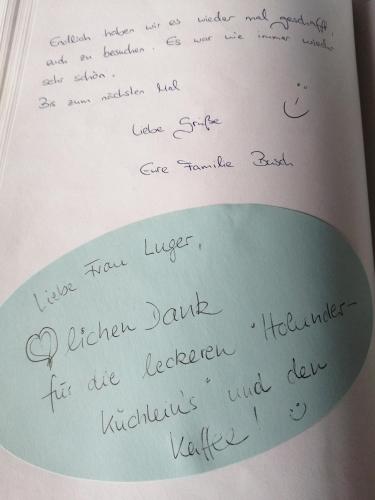 Endlich haben wir es wieder mal geschafft,
euch zu besuchen. Es war wie immer wieder
sehr schön.
Bis zum nächsten Mal
Liebe Grüße
Eure Familie Busch
Liebe Frau Luger,
♡lichen Dank
für die leckeren "Holunder-
küchlein's" und den
Kaffee! :)